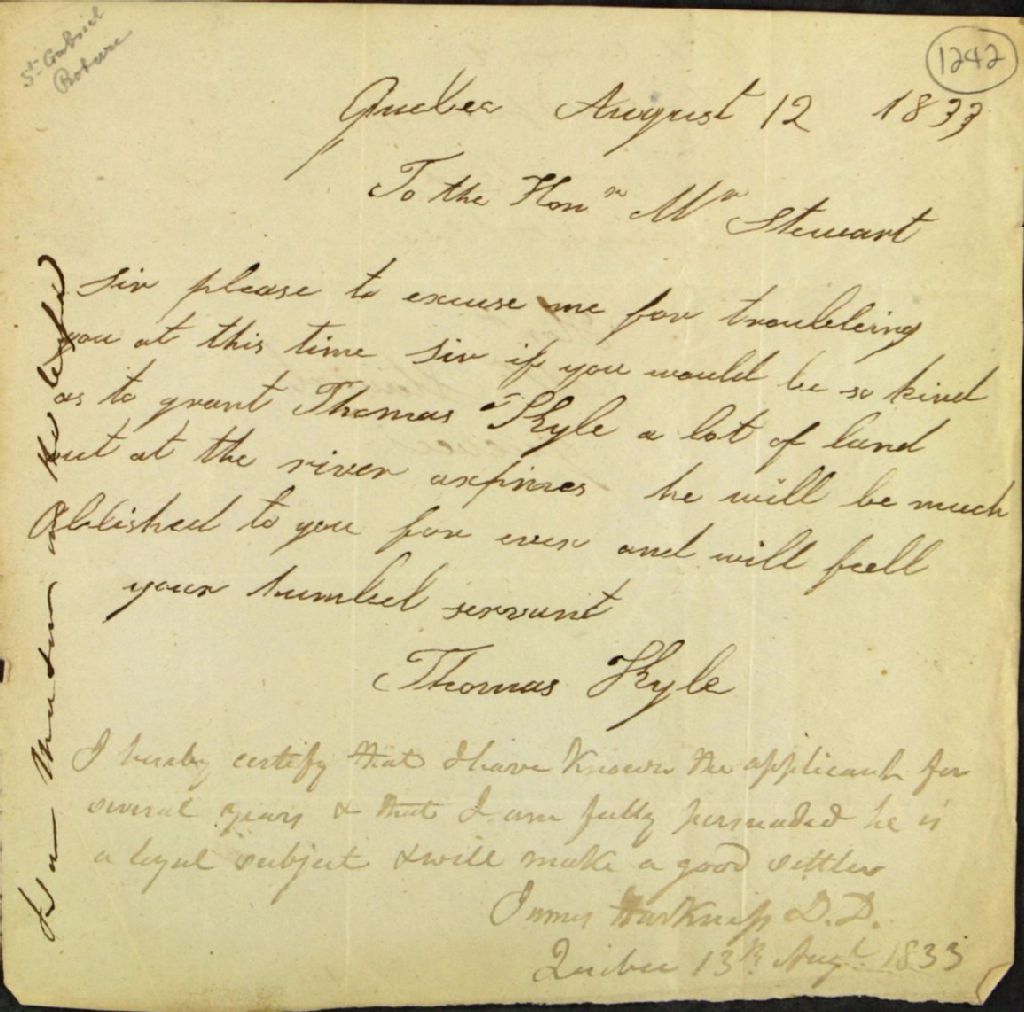 St. Gabriel
1242
Quebec August 12 1833
To the Honr Mr Stewart
Sir please to excuse me for troubleing
you at this time Sir if you would be so kind
as to grant Thomas Kyle a lot of land
out at the river aspines he will be much
Oblished to you for ever and will feell
your humbel servant
Thomas Kyle
I hereby certify that I have known the applicant for
several years & that I am fully persuaded he is
a loyal subject & will make a good settler
James Harkness D.D.
Quebec 13th Augt. 1833